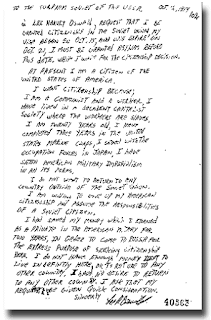 TO THE SUPREME SOVIET OF THE U.S.S.R.
OCT. 16, 1959
I, LEE HARVEY OSWALD, REQUEST THAT I BE
GRANTED CITIZENSHIP IN THE SOVIET UNION, MY
VISA BEGAN ON OCT. 15, AND WILL EXPIRE ON
OCT. 21, I MUST BE GRANTED ASYLUM BEFORE
THIS DATE, WHILE I WAIT FOR THE CITIZENSHIP DECISION.
AT PRESENT I AM A CITIZEN OF THE
UNITED STATES OF AMERICA.
I WANT CITIZENSHIP BECAUSE;
I AM A COMMUNIST AND A WORKER, I
HAVE LIVED IN A DECADENT CAPITALIST
SOCIETY WHERE THE WORKERS ARE SLAVES.
I AM TWENTY YEARS OLD, I HAVE
COMPLETED THREE YEARS IN THE UNITED
STATES MARINE CORPS, I SERVED WITH THE
OCCUPATION FORCES IN JAPAN, I HAVE
SEEN AMERICAN MILITARY IMPERIALISM
IN ALL ITS FORMS.
I DO NOT WANT TO RETURN TO ANY
COUNTRY OUTSIDE OF THE SOVIET UNION.
I AM WILLING TO GIVE UP MY AMERICAN
CITIZENSHIP AND ASSUME THE RESPONSIBILITIES
OF A SOVIET CITIZEN.
I HAD SAVED MY MONEY WHICH I EARNED
AS A PRIVATE IN THE AMERICAN MILITARY FOR
TWO YEARS, IN ORDER TO COME TO RUSSIA FOR
THE EXPRESS PURPOSE OF SEEKING CITIZENSHIP
HERE. I DO NOT HAVE ENOUGH MONEY LEFT TO
LIVE INDEFINITELY HERE, OR TO RETURN TO ANY
OTHER COUNTRY. I HAVE NO DESIRE TO RETURN
TO ANY OTHER COUNTRY. I ASK THAT MY
REQUEST BE GIVEN QUICK CONSIDERATION.
SINCERELY
40563